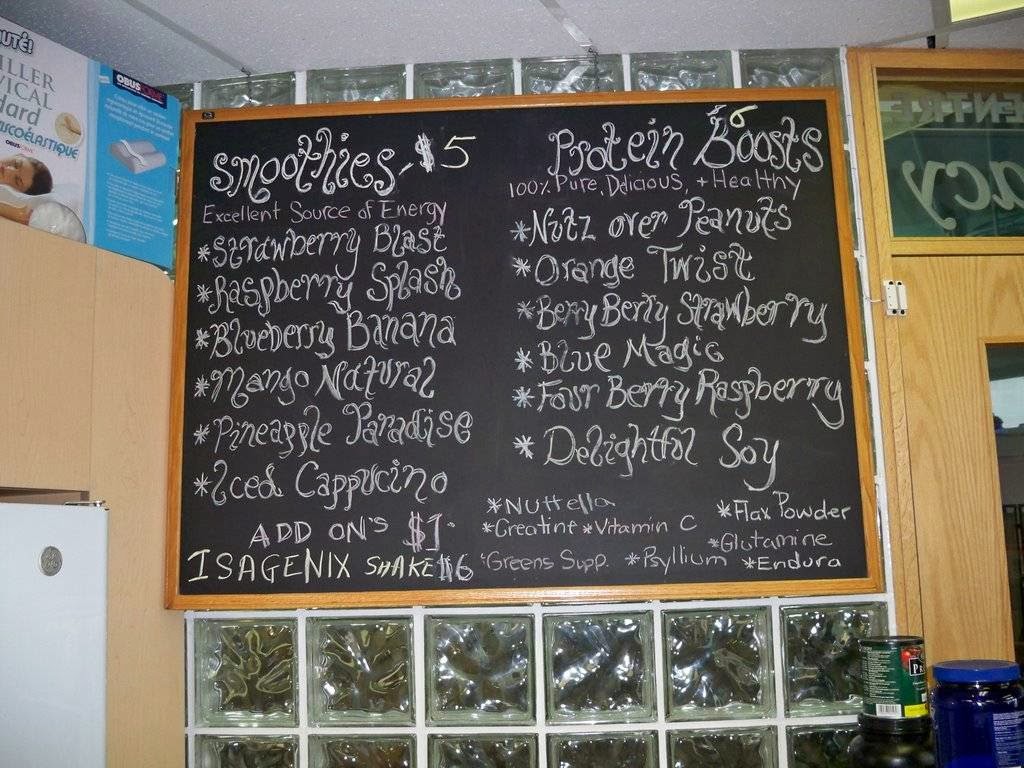 Smoothies - $5
Excellent Source of Energy
*Strawberry Blast
*Raspberry Splash
*Blueberry Banana
*Mango Natural
*Pineapple Paradise
*Iced Cappucino
ADD ON'S $1.
ISAGENIX SHAKE $6
$6
Protein Boosts
100% Pure, Delicious, + Healthy
*Nutz over Peanuts
*Orange Twist
*Berry Berry Strawberry
*Blue Magic
*Four Berry Raspberry
*Delightful Soy
*Nuttella
*Flax Powder
*Creatine *Vitamin C
*Glutamine
*Greens Supp. *Psyllium *Endura
OBUS